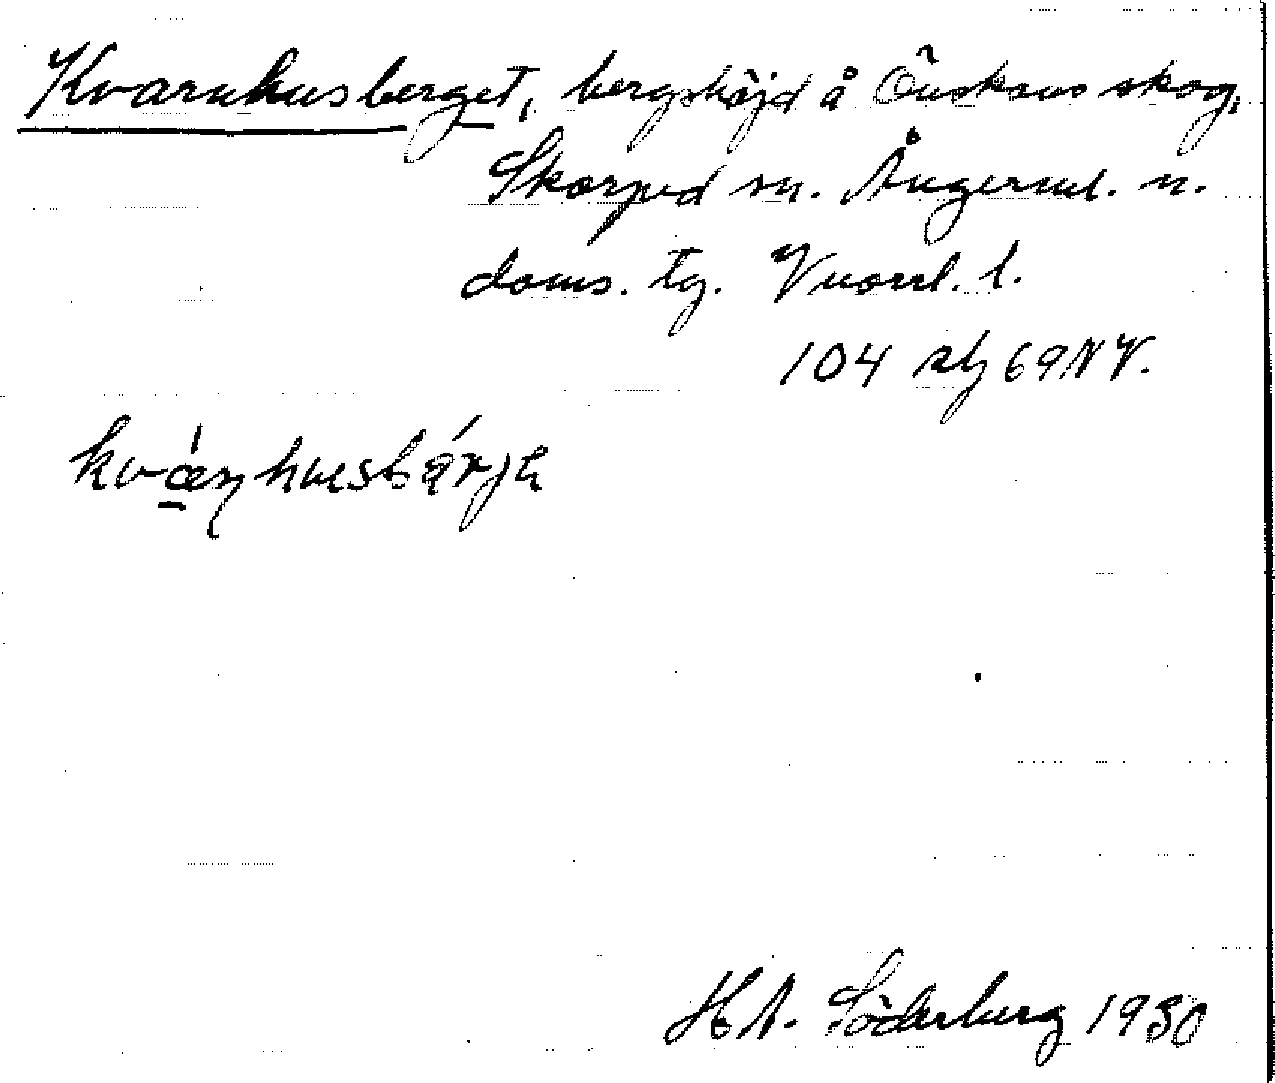 Kvarnhusberget, bergshöjd å Önskans skog,
Skorped sn. Ångerml. n.
doms. tg. Vnorrl. l.
104 stg 69 NV.
kvæ̀ɳhusbárjɛ
H A. Söderberg 1930